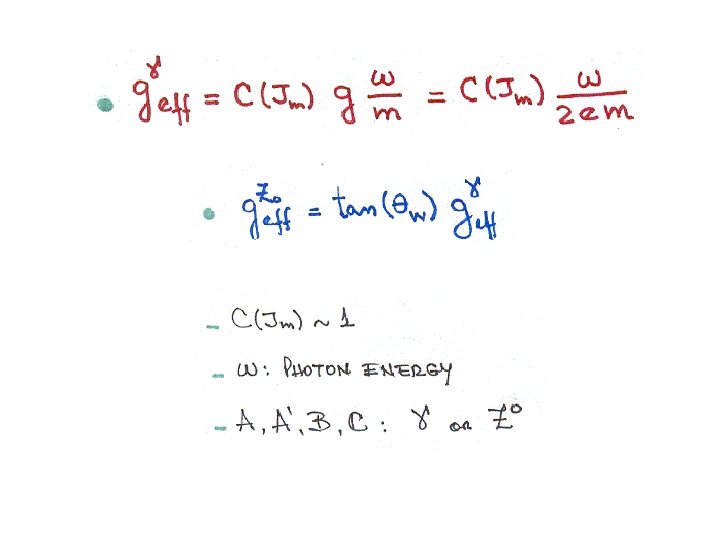 • g^γ_eff = C(J_m) g ω/m = C(J_m) ω/2em
• g^Z₀_eff = tan(θ_W) g^γ_eff
– C(J_m) ~ 1
– ω: PHOTON ENERGY
– A, A', B, C : γ or Z⁰